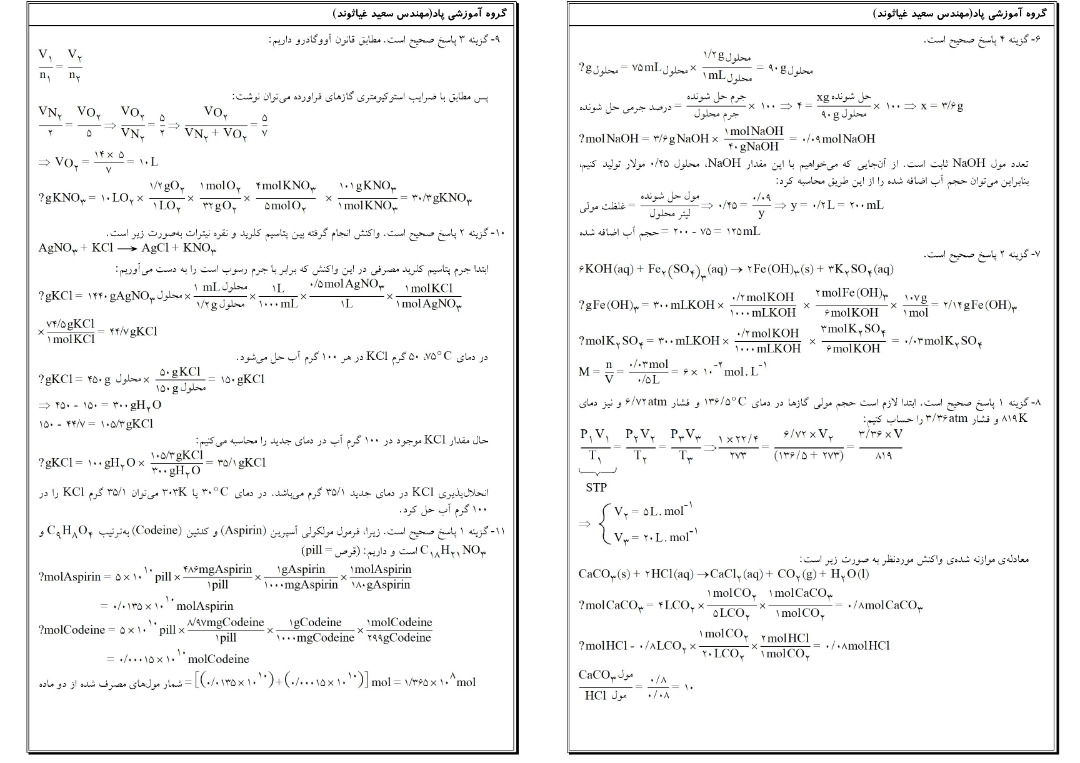 گروه آموزشی پاد(مهندس سعید غیاثوند)
۶- گزینه ۴ پاسخ صحیح است.
?gمحلول = ۷۵mLمحلول × ۱/۲gمحلول / ۱mLمحلول = ۹۰gمحلول
درصد جرمی حل شونده = جرم حل شونده / جرم محلول × ۱۰۰ ⇒ ۴ = xg حل شونده / ۹۰g محلول × ۱۰۰ ⇒ x = ۳/۶g
?molNaOH = ۳/۶gNaOH × ۱molNaOH / ۴۰gNaOH = ۰/۰۹molNaOH
تعداد مول NaOH ثابت است. از آن‌جایی که می‌خواهیم با این مقدار NaOH، محلول ۰/۴۵ مولار تولید کنیم،
بنابراین می‌توان حجم آب اضافه شده را از این طریق محاسبه کرد:
غلظت مولی = مول حل شونده / لیتر محلول ⇒ ۰/۴۵ = ۰/۰۹ / y ⇒ y = ۰/۲L = ۲۰۰mL
حجم آب اضافه شده = ۲۰۰ - ۷۵ = ۱۲۵mL
۷- گزینه ۲ پاسخ صحیح است.
۶KOH(aq) + Fe₂(SO₄)₃(aq) → ۲Fe(OH)₃(s) + ۳K₂SO₄(aq)
?gFe(OH)₃ = ۳۰۰mLKOH × ۰/۲molKOH / ۱۰۰۰mLKOH × ۲molFe(OH)₃ / ۶molKOH × ۱۰۷g / ۱mol = ۲/۱۴gFe(OH)₃
?molK₂SO₄ = ۳۰۰mLKOH × ۰/۲molKOH / ۱۰۰۰mLKOH × ۳molK₂SO₄ / ۶molKOH = ۰/۰۳molK₂SO₄
M = n / V = ۰/۰۳mol / ۰/۵L = ۶ × ۱۰⁻² mol.L⁻¹
۸- گزینه ۱ پاسخ صحیح است. ابتدا لازم است حجم مولی گازها در دمای ۱۳۶/۵°C و فشار ۶/۷۲atm و نیز دمای
۸۱۹K و فشار ۳/۳۶atm را حساب کنیم:
P₁V₁ / T₁ = P₂V₂ / T₂ = P₃V₃ / T₃ ⇒ ۱×۲۲/۴ / ۲۷۳ = ۶/۷۲×V₂ / (۱۳۶/۵+۲۷۳) = ۳/۳۶×V / ۸۱۹
STP
⇒ { V₂ = ۵L.mol⁻¹
V₃ = ۲۰L.mol⁻¹
معادله‌ی موازنه شده‌ی واکنش موردنظر به صورت زیر است:
CaCO₃(s) + ۲HCl(aq) → CaCl₂(aq) + CO₂(g) + H₂O(l)
?molCaCO₃ = ۴LCO₂ × ۱molCO₂ / ۵LCO₂ × ۱molCaCO₃ / ۱molCO₂ = ۰/۸molCaCO₃
?molHCl - ۰/۸LCO₂ × ۱molCO₂ / ۲۰LCO₂ × ۲molHCl / ۱molCO₂ = ۰/۰۸molHCl
مول CaCO₃ / مول HCl = ۰/۸ / ۰/۰۸ = ۱۰
گروه آموزشی پاد(مهندس سعید غیاثوند)
۹- گزینه ۳ پاسخ صحیح است. مطابق قانون آووگادرو داریم:
V₁ / n₁ = V₂ / n₂
پس مطابق با ضرایب استوکیومتری گازهای فراورده می‌توان نوشت:
VN₂ / ۲ = VO₂ / ۵ ⇒ VO₂ / VN₂ = ۵ / ۲ ⇒ VO₂ / VN₂ + VO₂ = ۵ / ۷
⇒ VO₂ = ۱۴×۵ / ۷ = ۱۰L
?gKNO₃ = ۱۰LO₂ × ۱/۲gO₂ / ۱LO₂ × ۱molO₂ / ۳۲gO₂ × ۴molKNO₃ / ۵molO₂ × ۱۰۱gKNO₃ / ۱molKNO₃ = ۳۰/۳gKNO₃
۱۰- گزینه ۲ پاسخ صحیح است. واکنش انجام گرفته بین پتاسیم کلرید و نقره نیترات به‌صورت زیر است.
AgNO₃ + KCl → AgCl + KNO₃
ابتدا جرم پتاسیم کلرید مصرفی در این واکنش که برابر با جرم رسوب است را به دست می‌آوریم:
?gKCl = ۱۴۴۰gAgNO₃ محلول × ۱ mL محلول / ۱/۲g محلول × ۱L / ۱۰۰۰mL × ۰/۵molAgNO₃ / ۱L × ۱molKCl / ۱molAgNO₃
× ۷۴/۵gKCl / ۱molKCl = ۴۴/۷gKCl
در دمای ۷۵°C، ۵۰ گرم KCl در هر ۱۰۰ گرم آب حل می‌شود.
?gKCl = ۴۵۰g محلول × ۵۰gKCl / ۱۵۰g محلول = ۱۵۰gKCl
⇒ ۴۵۰ - ۱۵۰ = ۳۰۰gH₂O
۱۵۰ - ۴۴/۷ = ۱۰۵/۳gKCl
حال مقدار KCl موجود در ۱۰۰ گرم آب در دمای جدید را محاسبه می‌کنیم:
?gKCl = ۱۰۰gH₂O × ۱۰۵/۳gKCl / ۳۰۰gH₂O = ۳۵/۱gKCl
انحلال‌پذیری KCl در دمای جدید ۳۵/۱ گرم می‌باشد. در دمای ۳۰°C یا ۳۰۳K می‌توان ۳۵/۱ گرم KCl را در
۱۰۰ گرم آب حل کرد.
۱۱- گزینه ۱ پاسخ صحیح است. زیرا، فرمول مولکولی آسپرین (Aspirin) و کدئین (Codeine) به‌ترتیب C₉H₈O₄ و
C₁₈H₂₁NO₃ است و داریم: (قرص = pill)
?molAspirin = ۵×۱۰¹⁰ pill × ۴۸۶mgAspirin / ۱pill × ۱gAspirin / ۱۰۰۰mgAspirin × ۱molAspirin / ۱۸۰gAspirin
= ۰/۰۱۳۵×۱۰¹⁰ molAspirin
?molCodeine = ۵×۱۰¹⁰ pill × ۸/۹۷mgCodeine / ۱pill × ۱gCodeine / ۱۰۰۰mgCodeine × ۱molCodeine / ۲۹۹gCodeine
= ۰/۰۰۰۱۵×۱۰¹⁰ molCodeine
شمار مول‌های مصرف شده از دو ماده = [(۰/۰۱۳۵×۱۰¹⁰)+(۰/۰۰۰۱۵×۱۰¹⁰)] mol = ۱/۳۶۵×۱۰⁸ mol